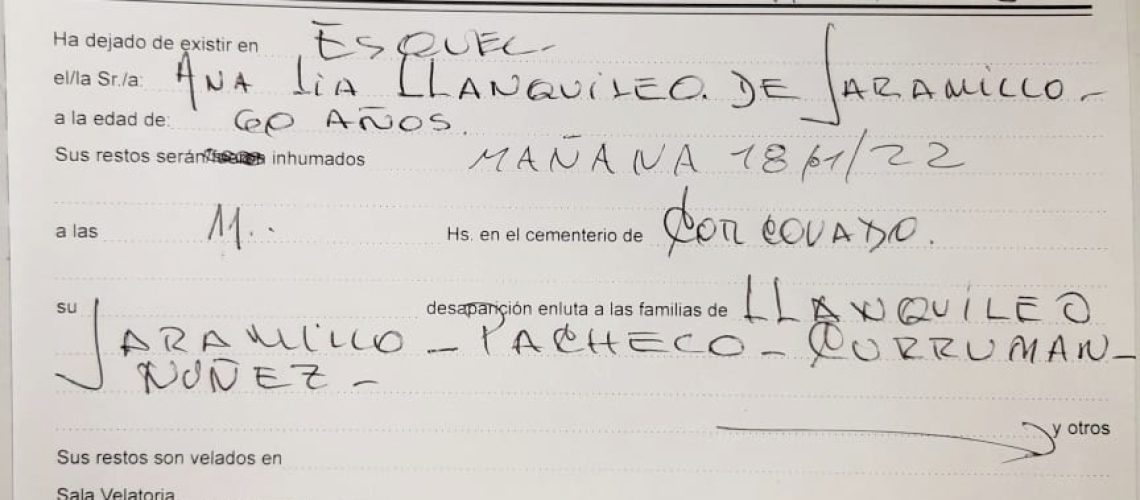 Ha dejado de existir en ESQUEL-
el/la Sr./a: ANA LÍA LLANQUILEO. DE JARAMILLO-
a la edad de: 60 AÑOS.
Sus restos serán inhumados MAÑANA 18/01/22
a las 11.. Hs. en el cementerio de CORCOVADO.
su desaparición enluta a las familias de LLANQUILEO
JARAMILLO - PACHECO - CURRUMAN -
NUÑEZ -
y otros
Sus restos son velados en
Sala Velatoria